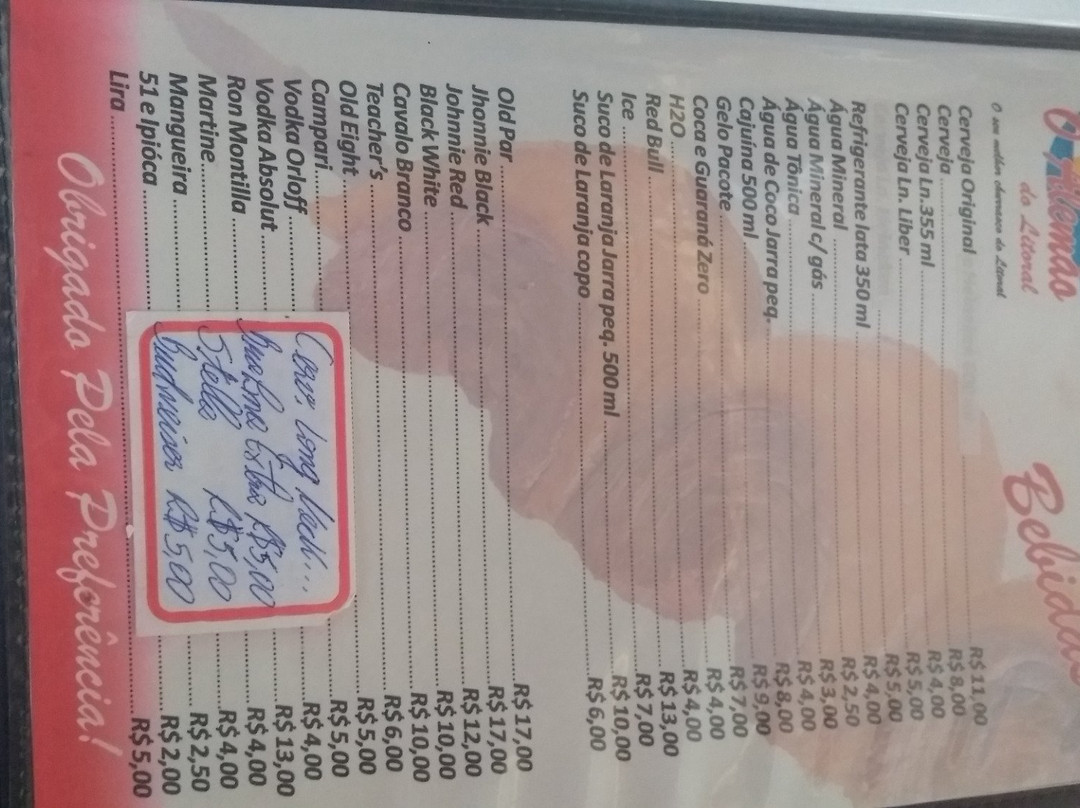 Alemão
do Litoral
O seu melhor churrasco do Litoral
Bebidas
Cerveja Original R$ 11,00
Cerveja R$ 8,00
Cerveja Ln.355 ml R$ 4,00
Cerveja Ln. Liber R$ 5,00
R$ 5,00
Refrigerante lata 350 ml R$ 4,00
Água Mineral R$ 2,50
Água Mineral c/ gás R$ 3,00
Água Tônica R$ 4,00
Água de Coco Jarra peq. R$ 8,00
Cajuína 500 ml R$ 9,00
Gelo Pacote R$ 7,00
Coca e Guaraná Zero R$ 4,00
H2O R$ 4,00
Red Bull R$ 13,00
Ice R$ 7,00
Suco de Laranja Jarra peq. 500 ml R$ 10,00
Suco de Laranja copo R$ 6,00
Old Par R$ 17,00
Jhonnie Black R$ 17,00
Johnnie Red R$ 12,00
Black White R$ 10,00
Cavalo Branco R$ 10,00
Teacher's R$ 6,00
Old Eight R$ 5,00
Campari R$ 5,00
Vodka Orloff R$ 4,00
Vodka Absolut R$ 13,00
Ron Montilla R$ 4,00
Martine R$ 4,00
Mangueira R$ 2,50
51 e Ipióca R$ 2,00
Lira R$ 5,00
Long Neck...
Extra R$5,00
Stella R$5,00
Budweiser R$5,00
Obrigado Pela Preferência!